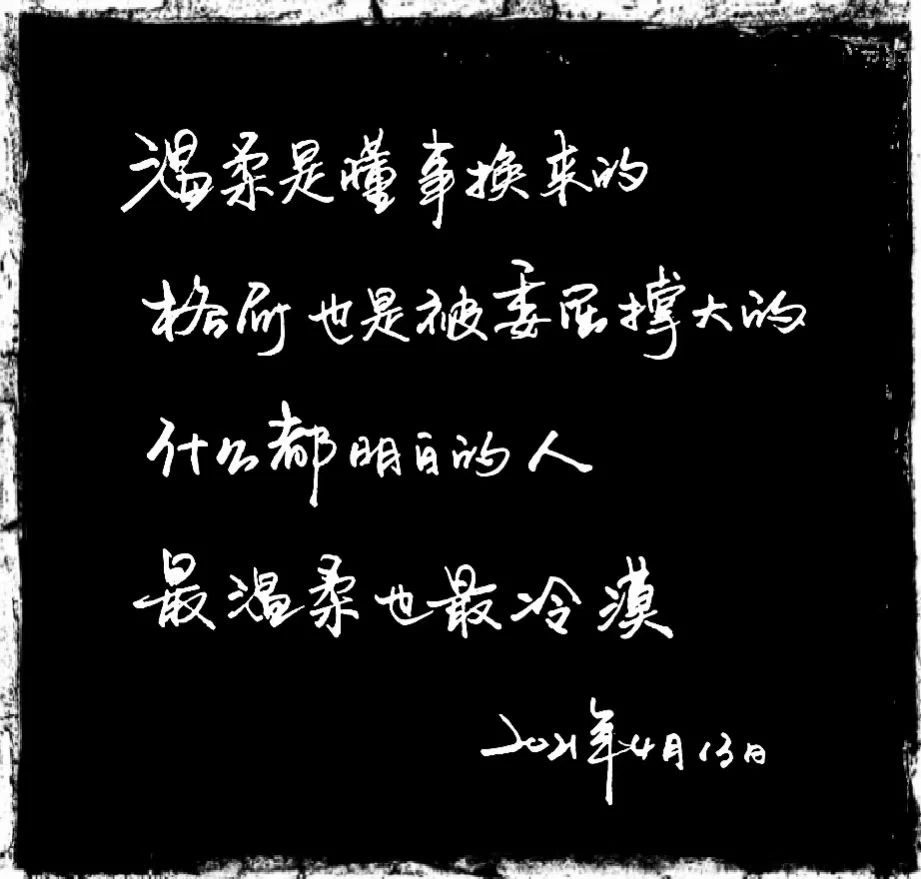 温柔是懂事换来的
格局也是被委屈撑大的
什么都明白的人
最温柔也最冷漠
2021年4月13日